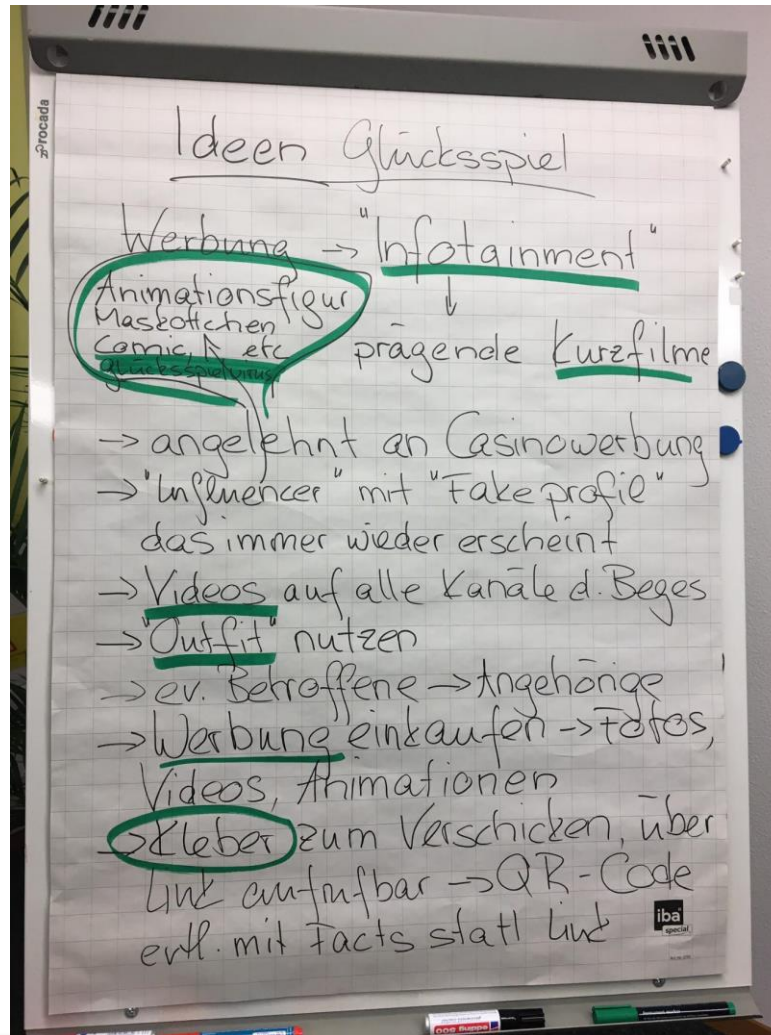 procada
Ideen Glücksspiel
Werbung → "Infotainment"
↓
Animationsfigur
Maskottchen
Comic, etc
Glücksspielvirus
prägende Kurzfilme
→ angelehnt an Casinowerbung
→ "Influencer" mit "Fakeprofil"
das immer wieder erscheint
→ Videos auf alle Kanäle d. Beges
→ "Outfit" nutzen
→ ev. Betroffene → Angehörige
→ Werbung einkaufen → Fotos,
Videos, Animationen
→ Kleber zum Verschicken, über
Link aufrufbar → QR-Code
evtl. mit Facts statt Link
iba
special
edding 800